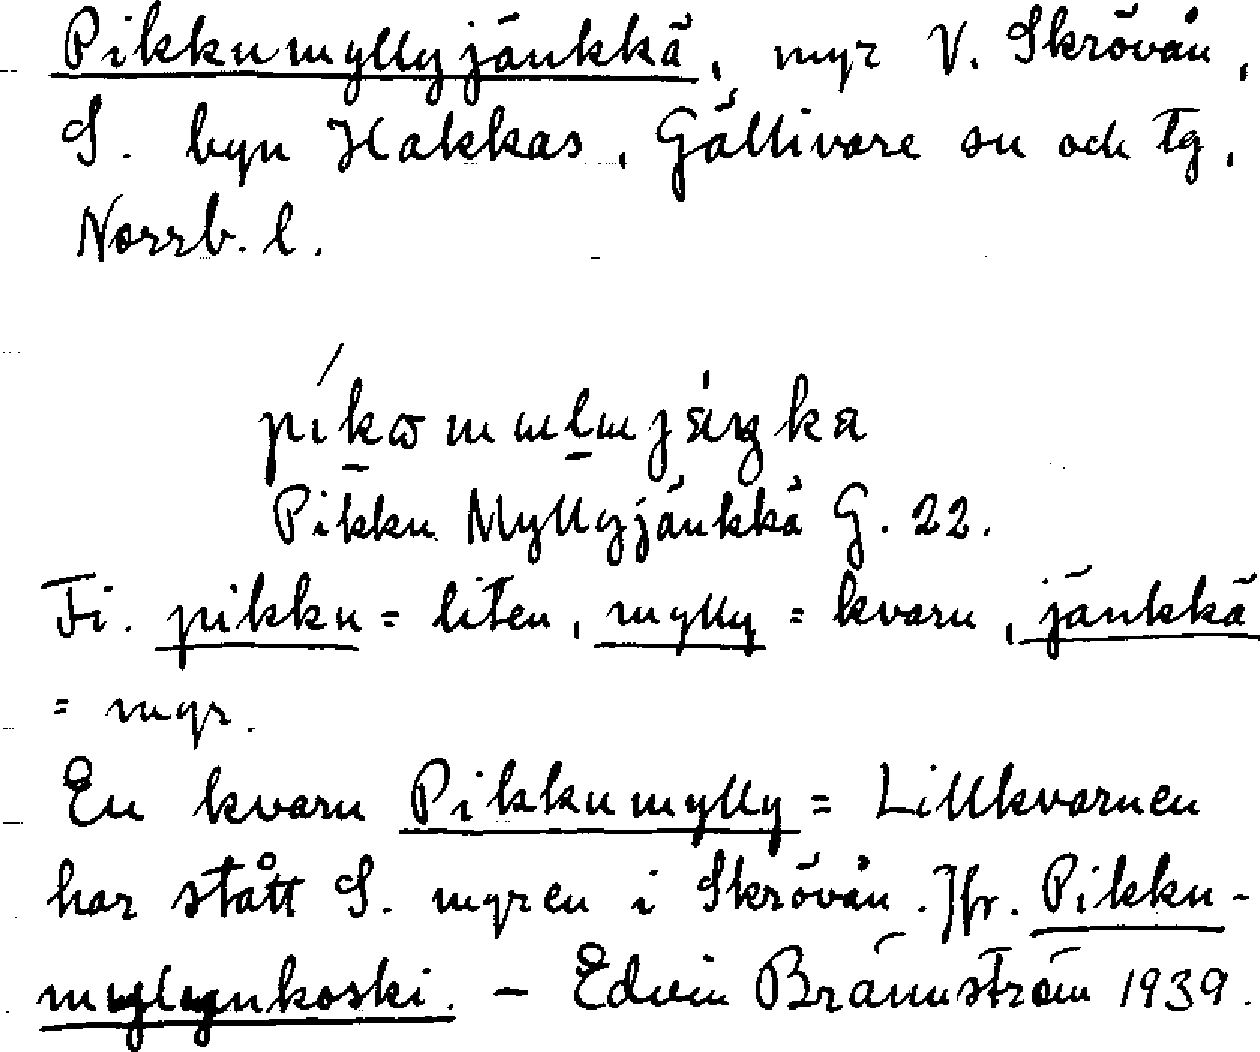 Pikkumyllyjänkkä, myr V. Skrövån,
S. byn Hakkas, Gällivare sn och tg,
Norrb. l.
Pikku Myllyjänkkä G. 22.
Fi. pikku = liten, mylly = kvarn, jänkkä
= myr.
En kvarn Pikkumylly = Lillkvarnen
har stått S. myren i Skrövån. Jfr. Pikku-
myllynkoski. – Edvin Brännström 1939.